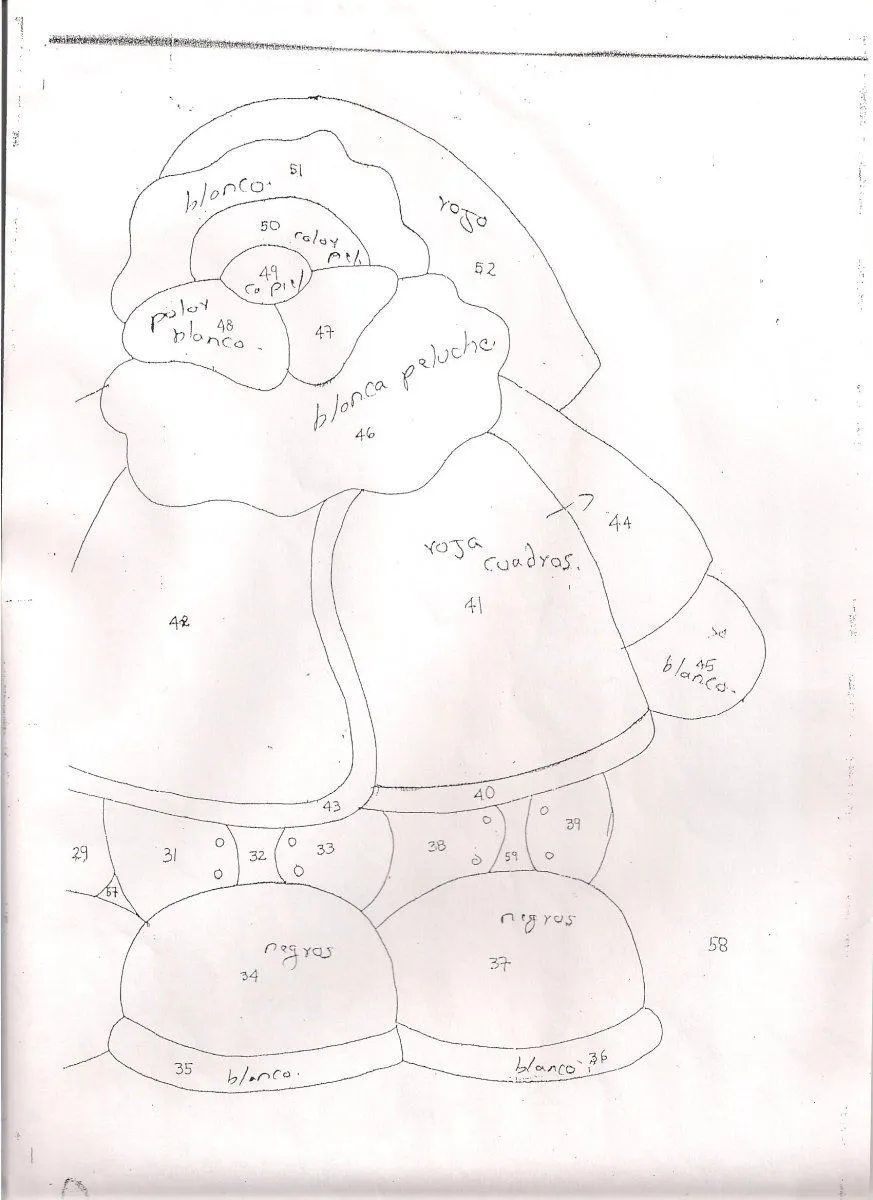 51
blanco.
rojo
50
color
piel
52
49
co piel
48
blanco.
47
blanca peluche
46
44
roja
cuadros.
41
42
45
blanco.
40
43
39
29
31
32
33
38
59
57
negros
negros
58
34
37
35
blanco.
blanco
36